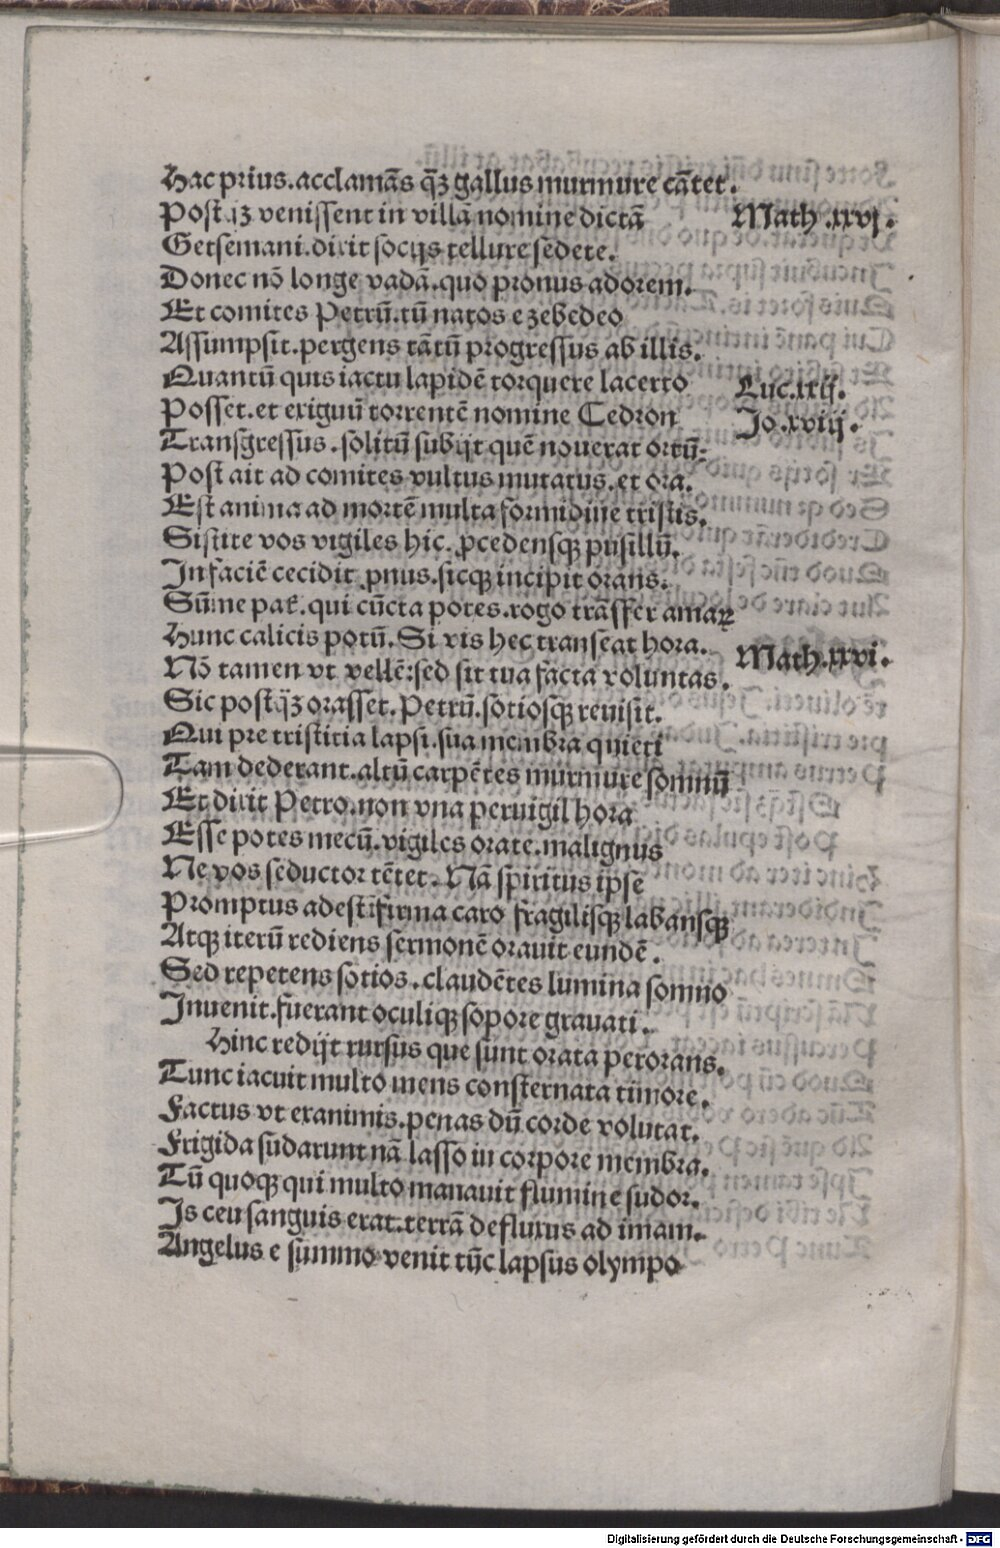 Hac prius.acclamās q̄ꝫ gallus murmure cātet.
Post qꝫ venissent in villā nomine dictā
Math.xxvj.
Getsemani.dixit socijs tellure sedete.
Donec nō longe vadā.quo pronus adorem.
Et comites Petrū.tū natos e zebedeo
Assumpsit.pergens tātū progressus ab illis.
Quantū quis iactu lapidē torquere lacerto
Luc.xxij.
Posset.et exiguū torrentē nomine Cedron
Jo.xviij.
Transgressus.solitū subijt quē nouerat ortū:
Post ait ad comites vultus mutatus.et ora.
Est anima ad mortē multa formidine tristis.
Sistite vos vigiles hic.ꝓcedensqꝫ pusillū.
In faciē cecidit ꝓnus.sicqꝫ incipit orans.
Sūme pat̄.qui cūcta potes.rogo trāsfer amaꝝ
Hunc calicis potū.Si vis hec transeat hora.
Math.xxvi.
Nō tamen vt vellē:sed sit tua facta voluntas.
Sic postq̄ꝫ orasset.Petrū.sotiosqꝫ reuisit.
Qui pre tristitia lapsi.sua membra quieti
Tam dederant.altū carpētes murmure somnū
Et dixit Petro.non vna peruigil hora
Esse potes mecū.vigiles orate.malignus
Ne vos seductor tētet.Nā spiritus ipse
Promptus adest:ifirma caro fragilisqꝫ labansqꝫ
Atqꝫ iterū rediens sermonē orauit eundē.
Sed repetens sotios.claudētes lumina somno
Inuenit.fuerant oculiqꝫ sopore grauati.
Hinc redijt rursus que sunt orata perorans.
Tunc iacuit multo mens consternata timore.
Factus vt exanimis.penas dū corde volutat.
Frigida sudarunt nā lasso in corpore membra.
Tū quoqꝫ qui multo manauit flumine sudor.
Is ceu sanguis erat.terrā defluxus ad imam.
Angelus e summo venit tūc lapsus olympo
Digitalisierung gefördert durch die Deutsche Forschungsgemeinschaft - DFG